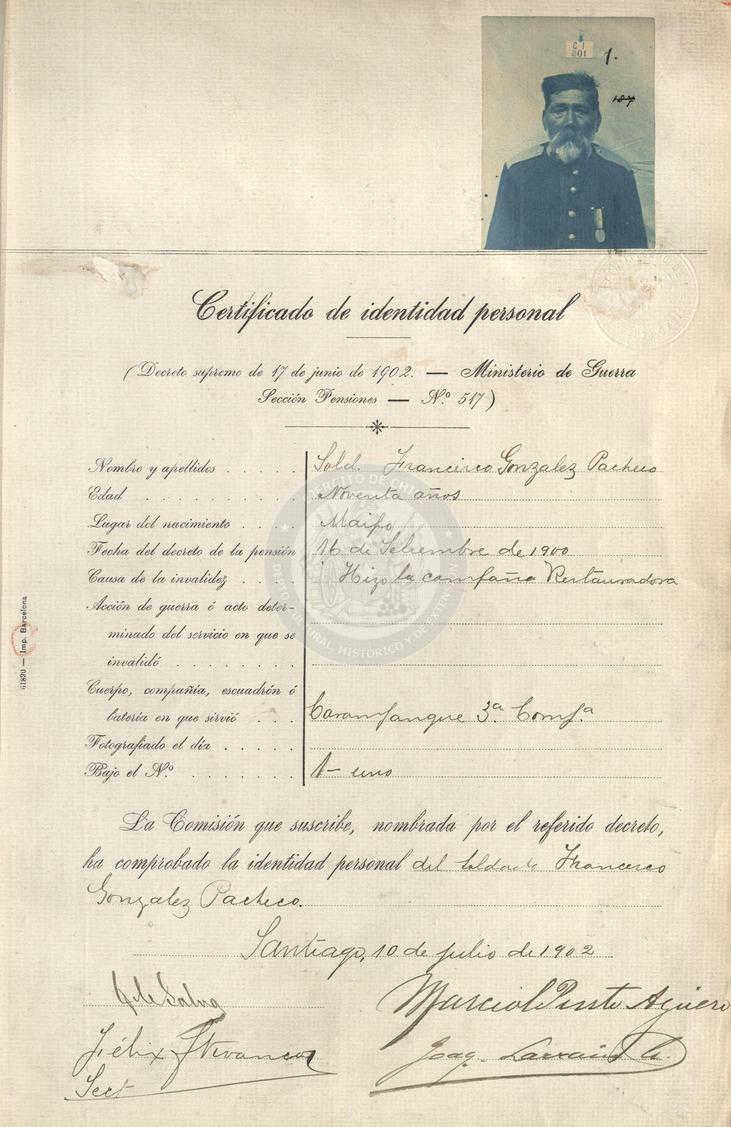 C I
201
1.
Certificado de identidad personal
(Decreto supremo de 17 de junio de 1902. — Ministerio de Guerra
Sección Pensiones — N.º 517)
Nombre y apellidos . . . . . Sold. Francisco Gonzalez Pacheco
Edad . . . . . . . . . Noventa años
Lugar del nacimiento . . . . Maipo
Fecha del decreto de la pensión 16 de Setiembre de 1900
Causa de la invalidez . . . . Hizo la campaña Restauradora
Acción de guerra ó acto deter-
minado del servicio en que se
invalidó . . . . . . . .
Cuerpo, compañía, escuadrón ó
batería en que sirvió . . . Carampangue 3ª Compª
Fotografiado el día . . . . .
Bajo el N.º . . . . . . . 1 - uno
61820 — Imp. Barcelona
La Comisión que suscribe, nombrada por el referido decreto,
ha comprobado la identidad personal del soldado Francisco
Gonzalez Pacheco.
Santiago, 10 de julio de 1902
Marcial Pinto Agüero
Félix
Sect